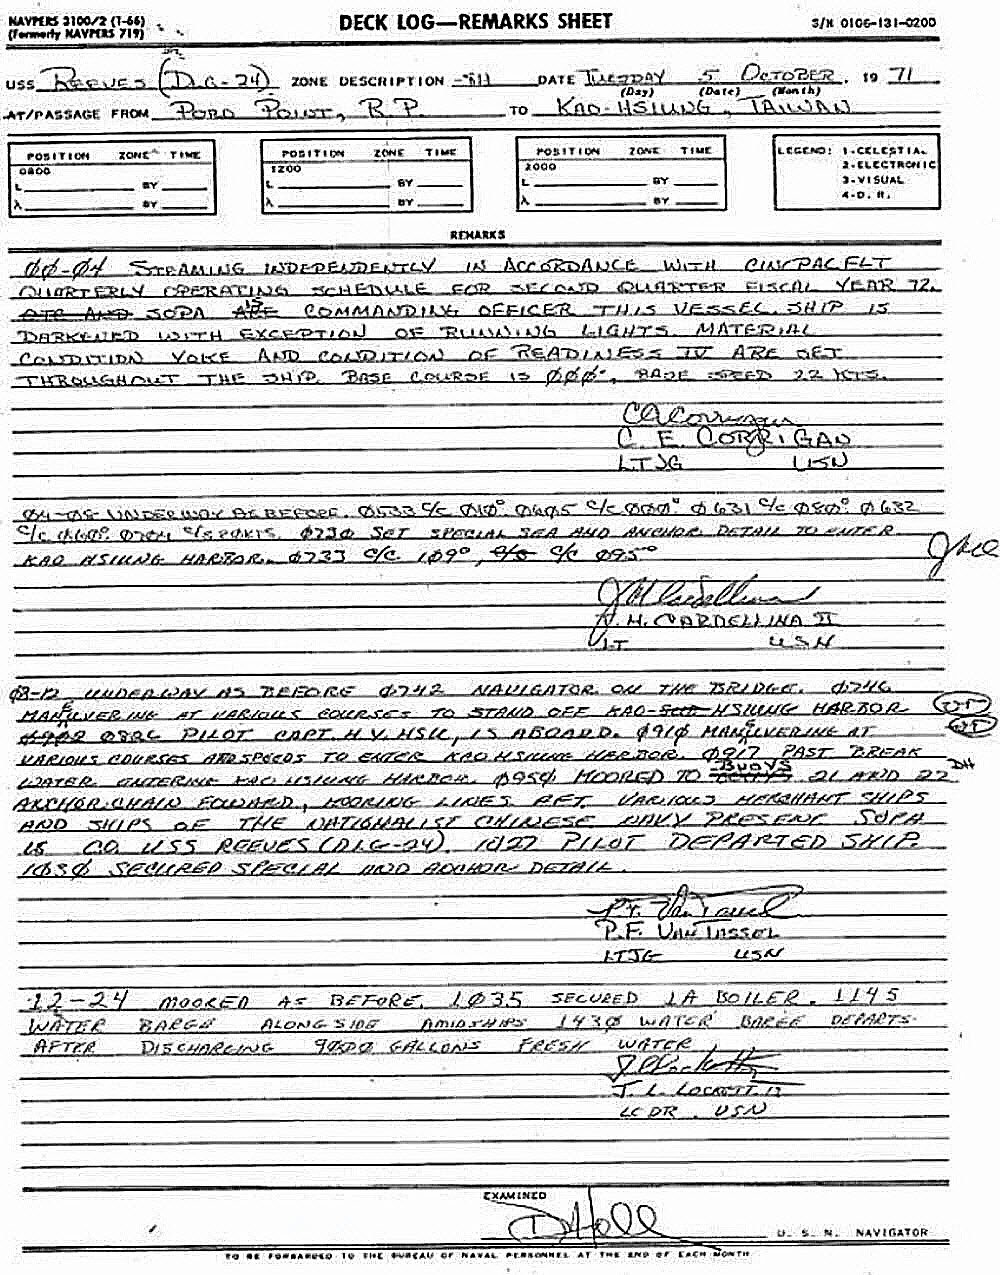 NAVPERS 3100/2 (1-66)
(Formerly NAVPERS 719)
DECK LOG—REMARKS SHEET
S/N 0106-131-0200
USS REEVES (DLG-24) ZONE DESCRIPTION -8H DATE TUESDAY 5 OCTOBER, 19 71
(Day) (Date) (Month)
AT/PASSAGE FROM PORO POINT, R.P. TO KAO-HSIUNG, TAIWAN
POSITION ZONE TIME
0800
L BY
λ BY
POSITION ZONE TIME
1200
L BY
λ BY
POSITION ZONE TIME
2000
L BY
λ BY
LEGEND: 1-CELESTIAL
2-ELECTRONIC
3-VISUAL
4-D. R.
REMARKS
00-04 STEAMING INDEPENDENTLY IN ACCORDANCE WITH CINCPACFLT
QUARTERLY OPERATING SCHEDULE FOR SECOND QUARTER FISCAL YEAR 72.
OTC AND SOPA ARE IS COMMANDING OFFICER THIS VESSEL. SHIP IS
DARKENED WITH EXCEPTION OF RUNNING LIGHTS. MATERIAL
CONDITION YOKE AND CONDITION OF READINESS IV ARE SET
THROUGHOUT THE SHIP. BASE COURSE IS 000°, BASE SPEED 22 KTS.
C. E. CORRIGAN
LTJG USN
04-08 UNDERWAY AS BEFORE. 0533 C/C 010° 0605 C/C 000° 0631 C/C 080° 0632
C/C 060° 0704 C/S 20KTS. 0730 SET SPECIAL SEA AND ANCHOR DETAIL TO ENTER
KAO HSIUNG HARBOR. 0733 C/C 109°, C/S C/C 095°
J. H. CARDELLINA II
LT USN
08-12 UNDERWAY AS BEFORE 0742 NAVIGATOR ON THE BRIDGE. 0746
MANEUVERING AT VARIOUS COURSES TO STAND OFF KAO-HSIUNG HARBOR
0826 PILOT CAPT. H.Y. HSU, IS ABOARD. 0910 MANEUVERING AT
VARIOUS COURSES AND SPEEDS TO ENTER KAO HSIUNG HARBOR. 0917 PAST BREAK
WATER ENTERING KAO HSIUNG HARBOR. 0950 MOORED TO BUOYS 21 AND 22 DH
ANCHOR CHAIN FOWARD, MOORING LINES AFT. VARIOUS MERCHANT SHIPS
AND SHIPS OF THE NATIONALIST CHINESE NAVY PRESENT SOPA
IS CO. USS REEVES (DLG-24). 1027 PILOT DEPARTED SHIP.
1030 SECURED SPECIAL AND ANCHOR DETAIL.
P.F. VAN TASSEL
LTJG USN
12-24 MOORED AS BEFORE. 1035 SECURED 1A BOILER. 1145
WATER BARGE ALONGSIDE AMIDSHIPS 1430 WATER BARGE DEPARTS
AFTER DISCHARGING 9000 GALLONS FRESH WATER
J. L. LOCKETT
LCDR USN
EXAMINED
D Hall
U. S. N. NAVIGATOR
TO BE FORWARDED TO THE BUREAU OF NAVAL PERSONNEL AT THE END OF EACH MONTH